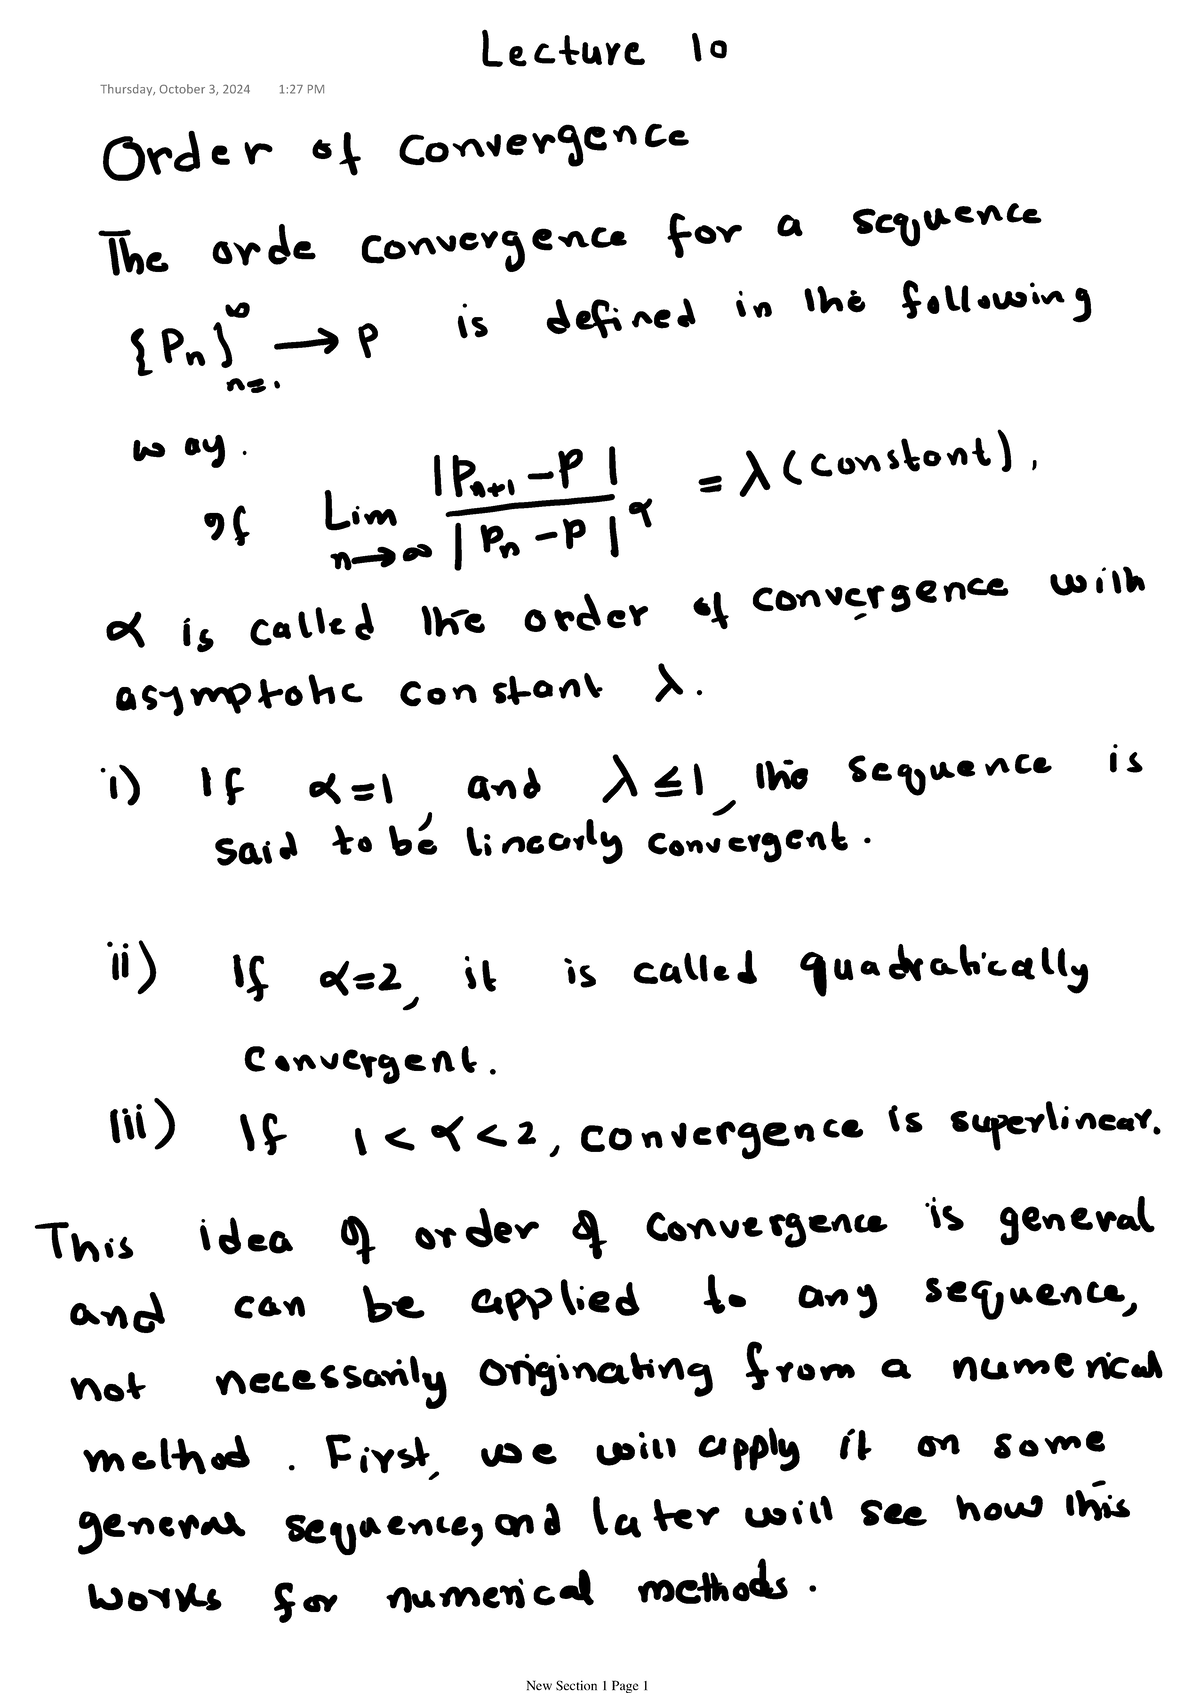 Lecture 10
Thursday, October 3, 2024 1:27 PM
Order of convergence
The orde convergence for a sequence
{Pn}∞n=1 → P is defined in the following
way.
If Lim n→∞ |Pn+1 - P| / |Pn - P|^α = λ (constant),
α is called the order of convergence with
asymptotic constant λ.
i) If α=1, and λ ≤ 1, the sequence is
said to be linearly convergent.
ii) If α=2, it is called quadratically
convergent.
iii) If 1 < α < 2, convergence is superlinear.
This idea of order of convergence is general
and can be applied to any sequence,
not necessarily originating from a numerical
method. First, we will apply it on some
general sequence, and later will see how this
works for numerical methods.
New Section 1 Page 1